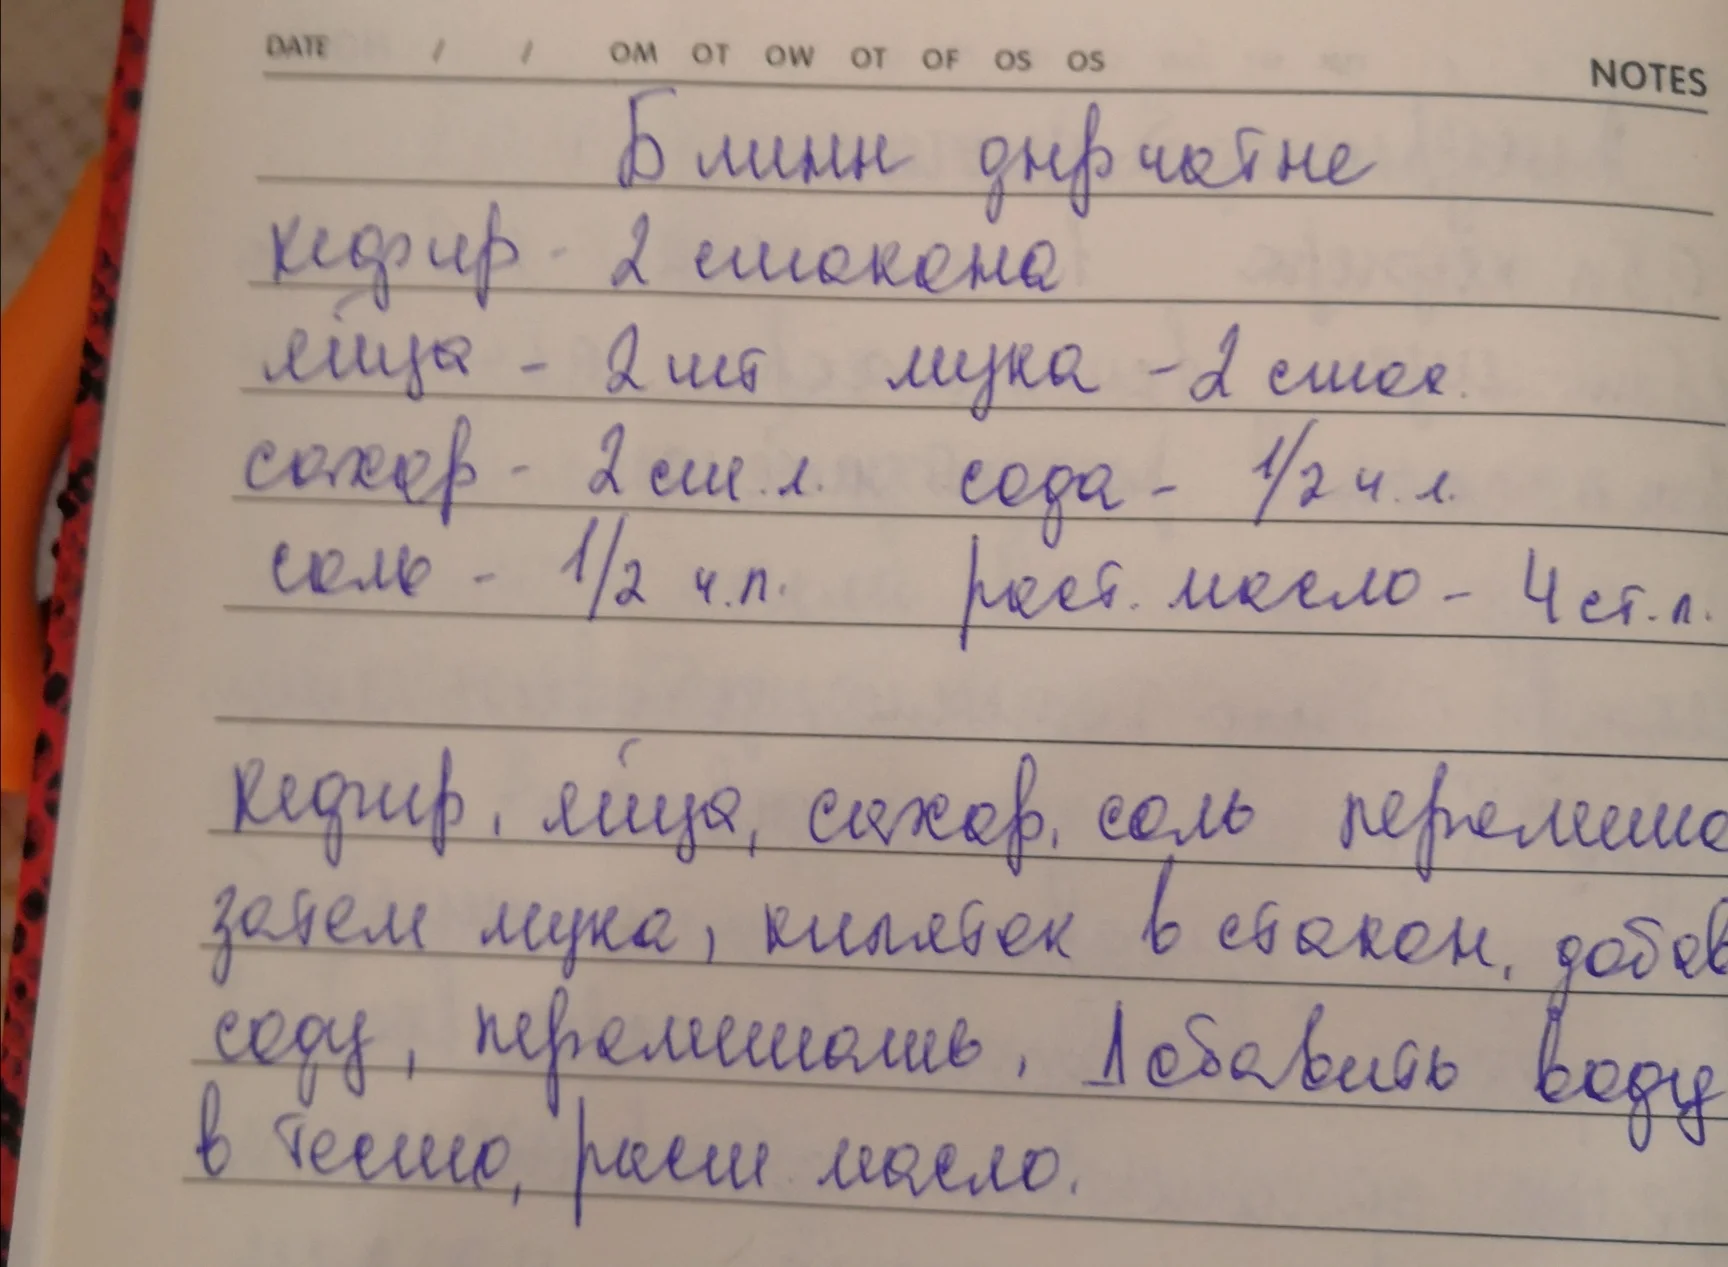 DATE / / OM OT OW OT OF OS OS NOTES
Блины дырчатые
кефир - 2 стакана
яйца - 2 шт мука - 2 стак.
сахар - 2 ст. л. сода - 1/2 ч. л.
соль - 1/2 ч.л. раст. масло - 4 ст.л.
Кефир, яйца, сахар, соль перемеша
затем мука, кипяток в стакан, добав
соду, перемешать. Добавить воду
в тесто, раст масло.